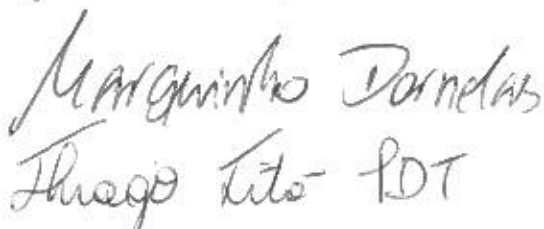 Marquinho Dornelas
Thiago Titó PDT